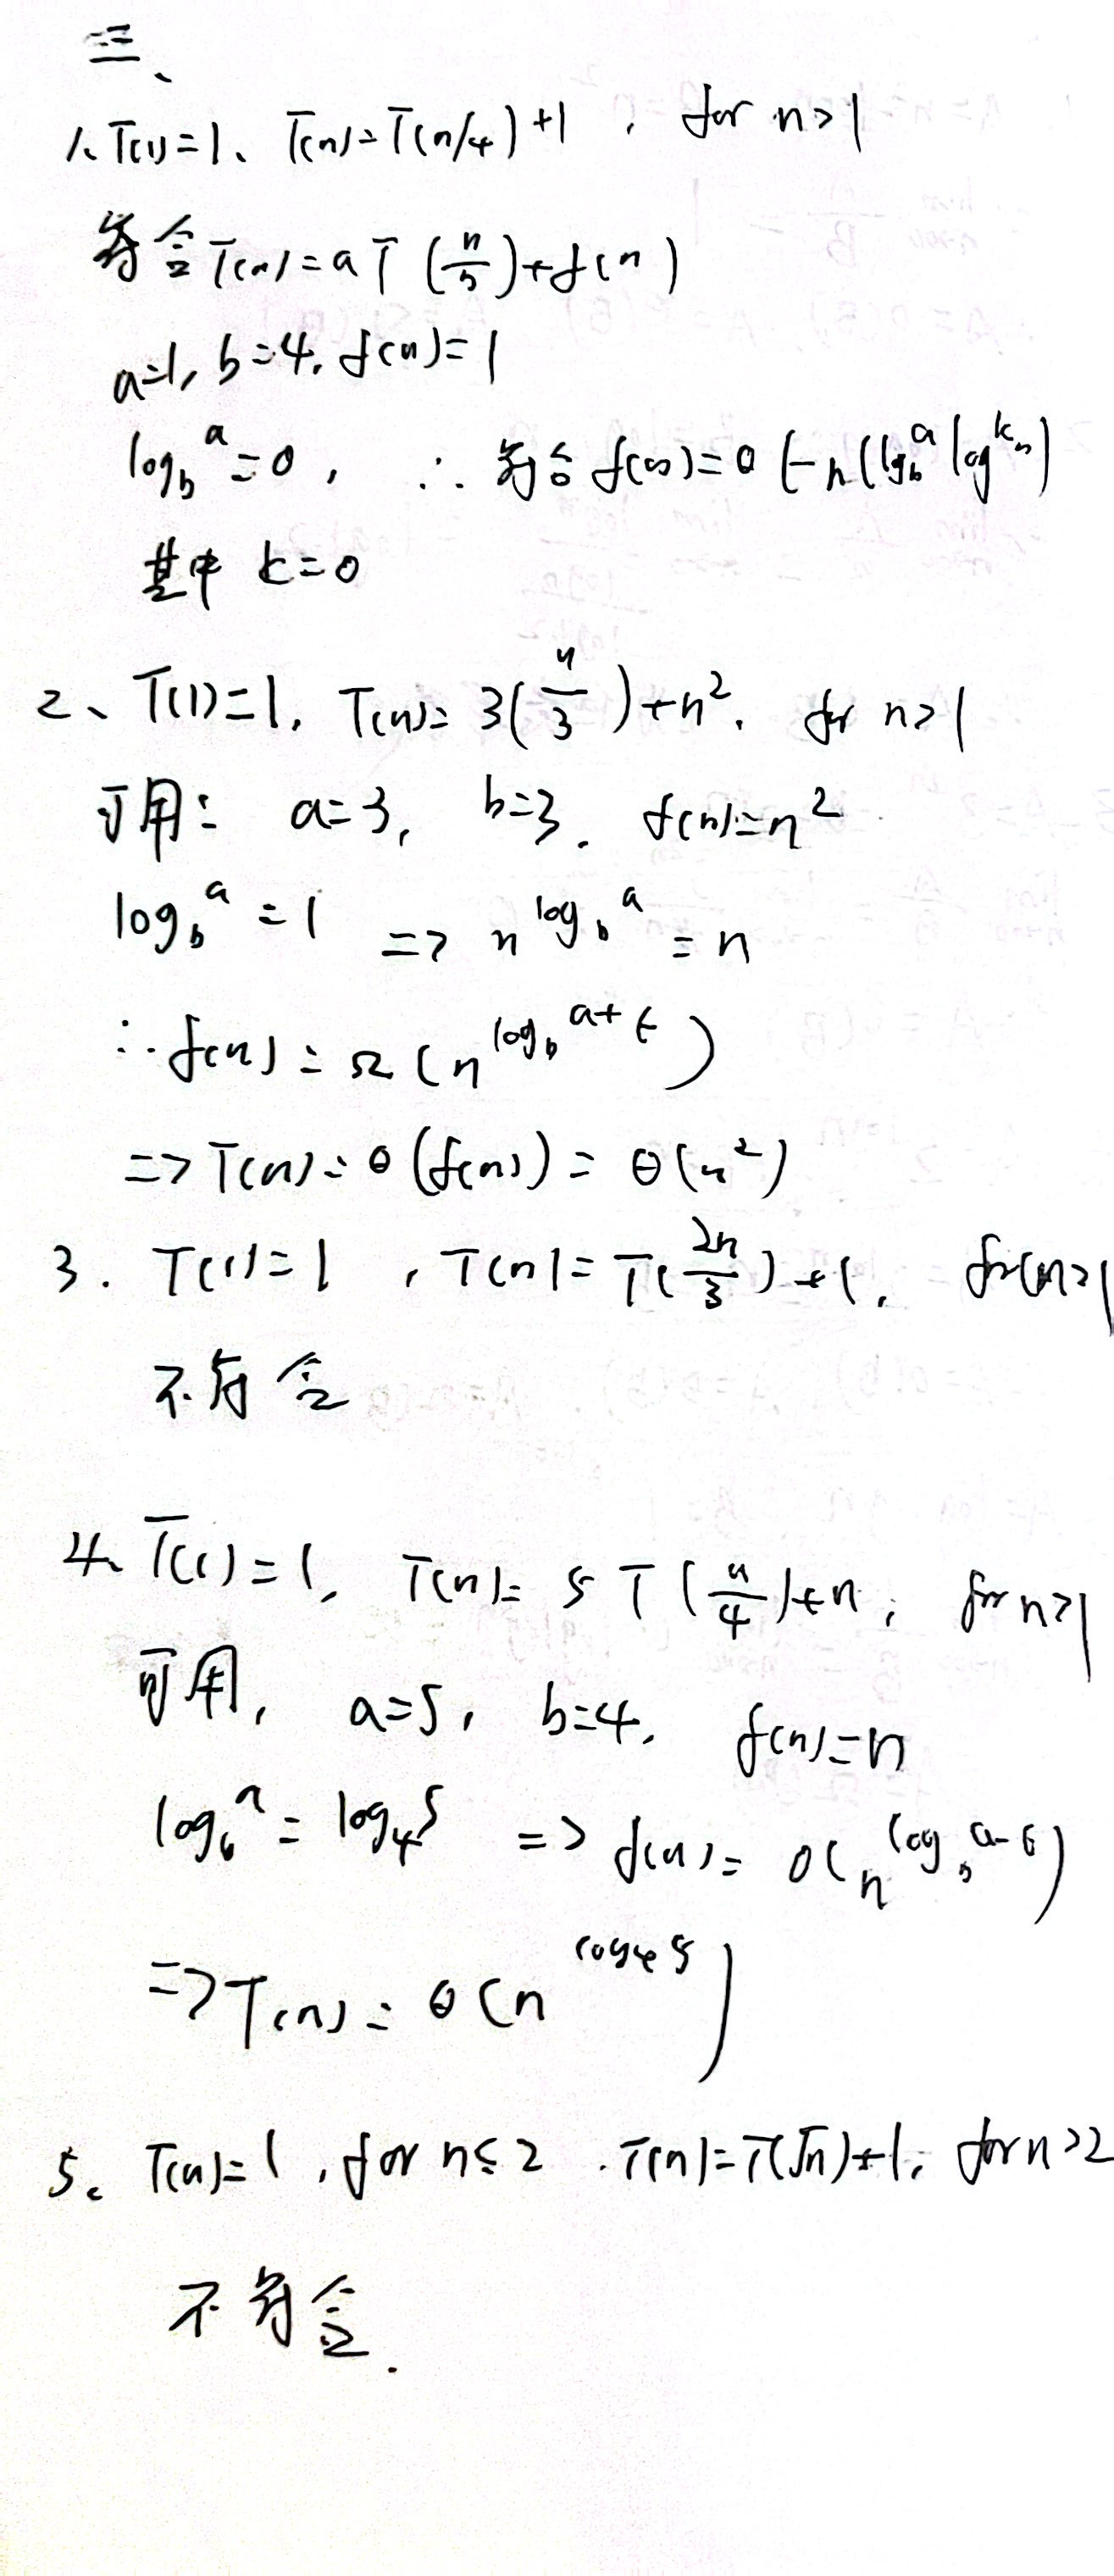 三、
1、T(1)=1、T(n)=T(n/4)+1, for n>1
符合T(n)=aT(n/b)+f(n)
a=1, b=4, f(n)=1
log_b^a=0, ∴ 符合 f(n)=θ(n^(log_b^a log^k n)
其中 k=0
2、T(1)=1, T(n)=3(n/3)+n², for n>1
可用: a=3, b=3, f(n)=n²
log_b^a=1 => n^(log_b^a)=n
∴ f(n)=Ω(n^(log_b^(a+ϵ)))
=>T(n)=θ(f(n))=θ(n²)
3. T(1)=1, T(n)=T(2n/3)+1, for(n>1
不符合
4、T(1)=1, T(n)=5T(n/4)+n, for n>1
可用, a=5, b=4, f(n)=n
log_b^a=log_4^5 => f(n)=O(n^(log_b^(a-ϵ)))
=>T(n)=θ(n^(log_4 5))
5、T(n)=1, for n≤2. T(n)=T(√n)+1, for n>2
不符合.